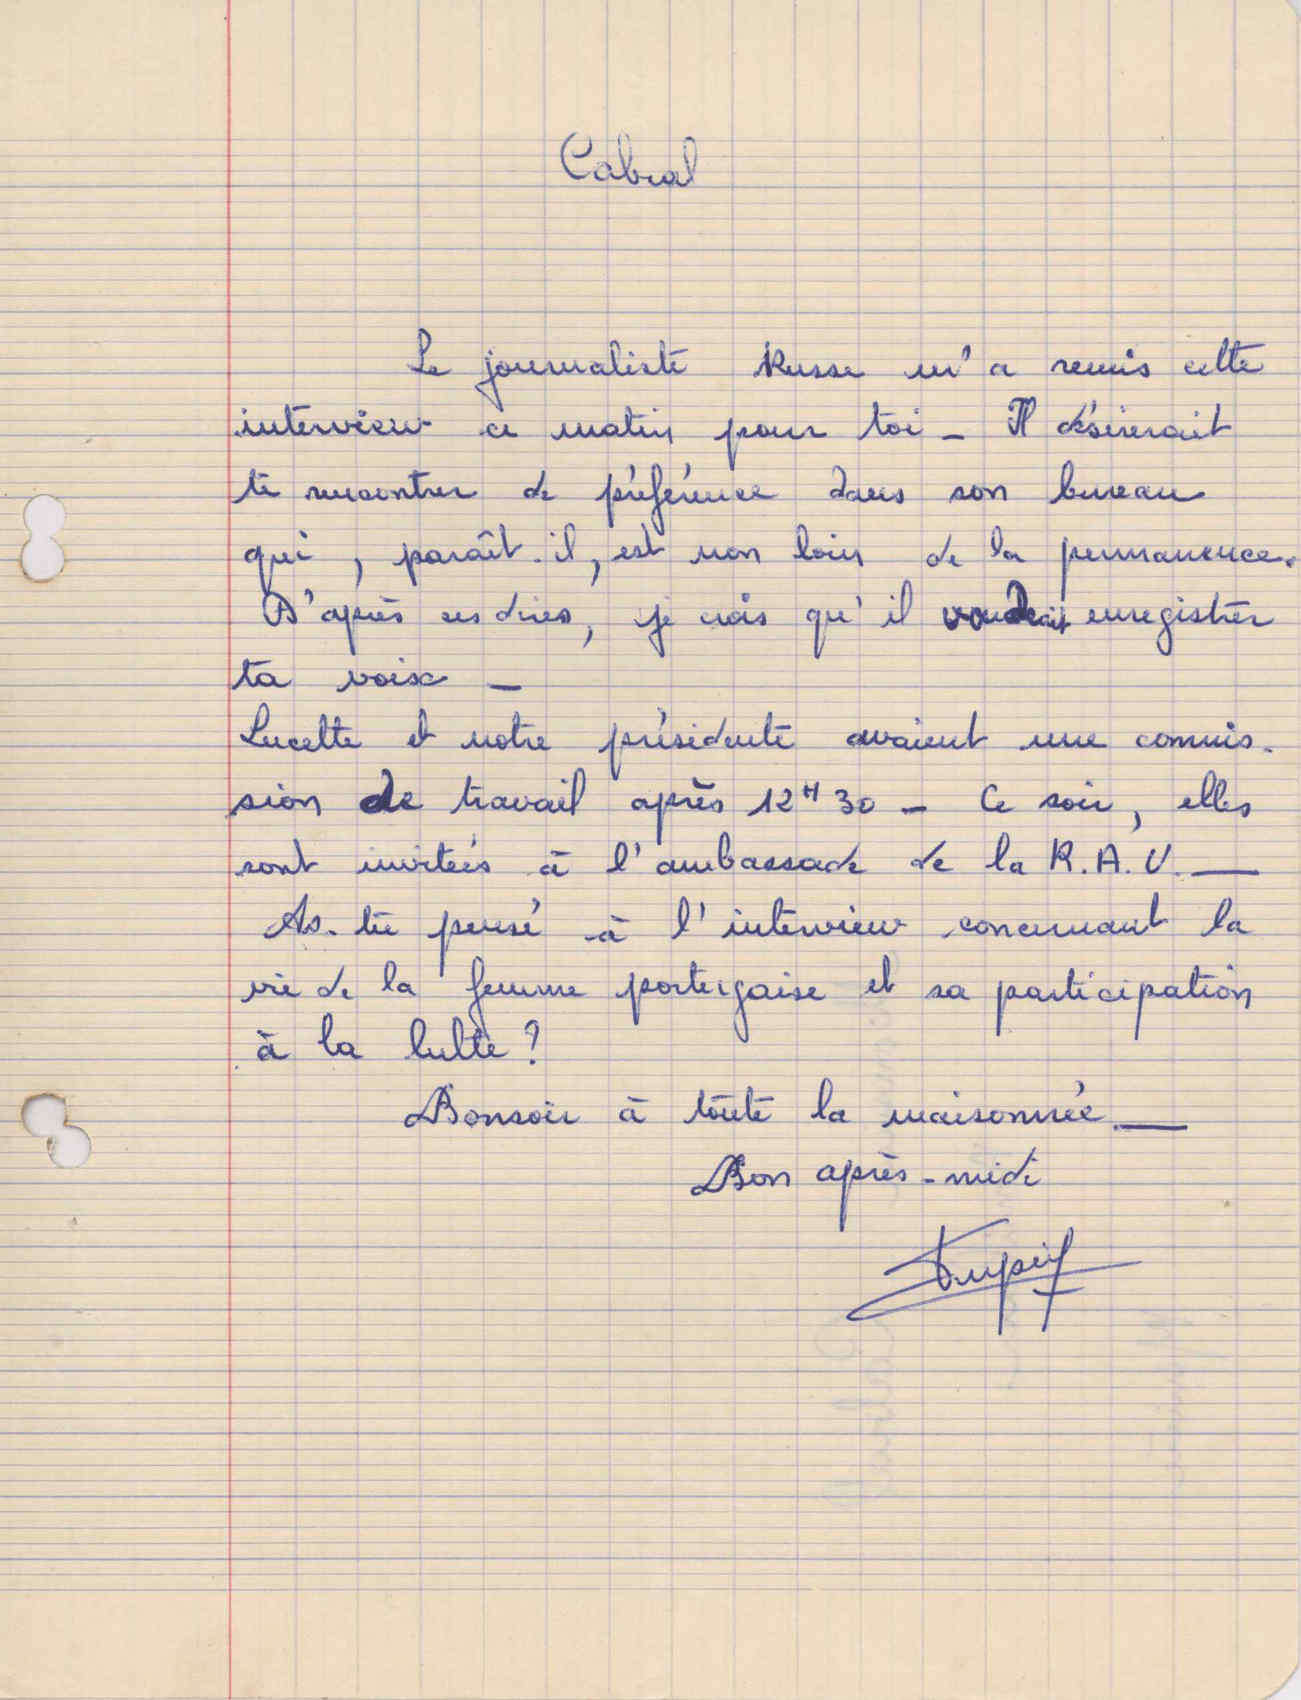 Cabral
Le journaliste Russe m'a remis cette
interview ce matin pour toi - Il désirerait
te rencontrer de préférence dans son bureau
qui, paraît-il, est non loin de la permanence.
D'après ses dires, je crois qu'il voudrait enregistrer
ta voix -
Lucette et notre présidente avaient une commis-
sion de travail après 12H30 - Ce soir, elles
sont invitées à l'ambassade de la R.A.U. -
As-tu pensé à l'interview concernant la
vie de la femme portugaise et sa participation
à la lutte ?
Bonsoir à toute la maisonnée -
Bon après-midi